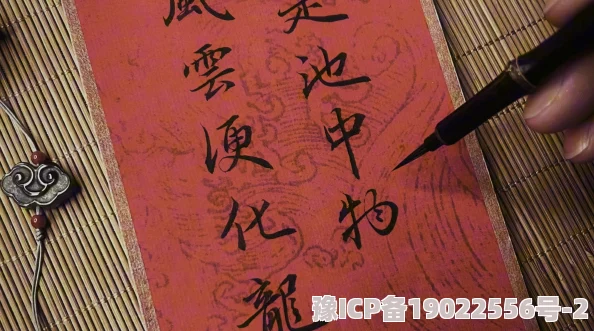 是池中物
風雲便化龍
豫ICP备19022556号-2